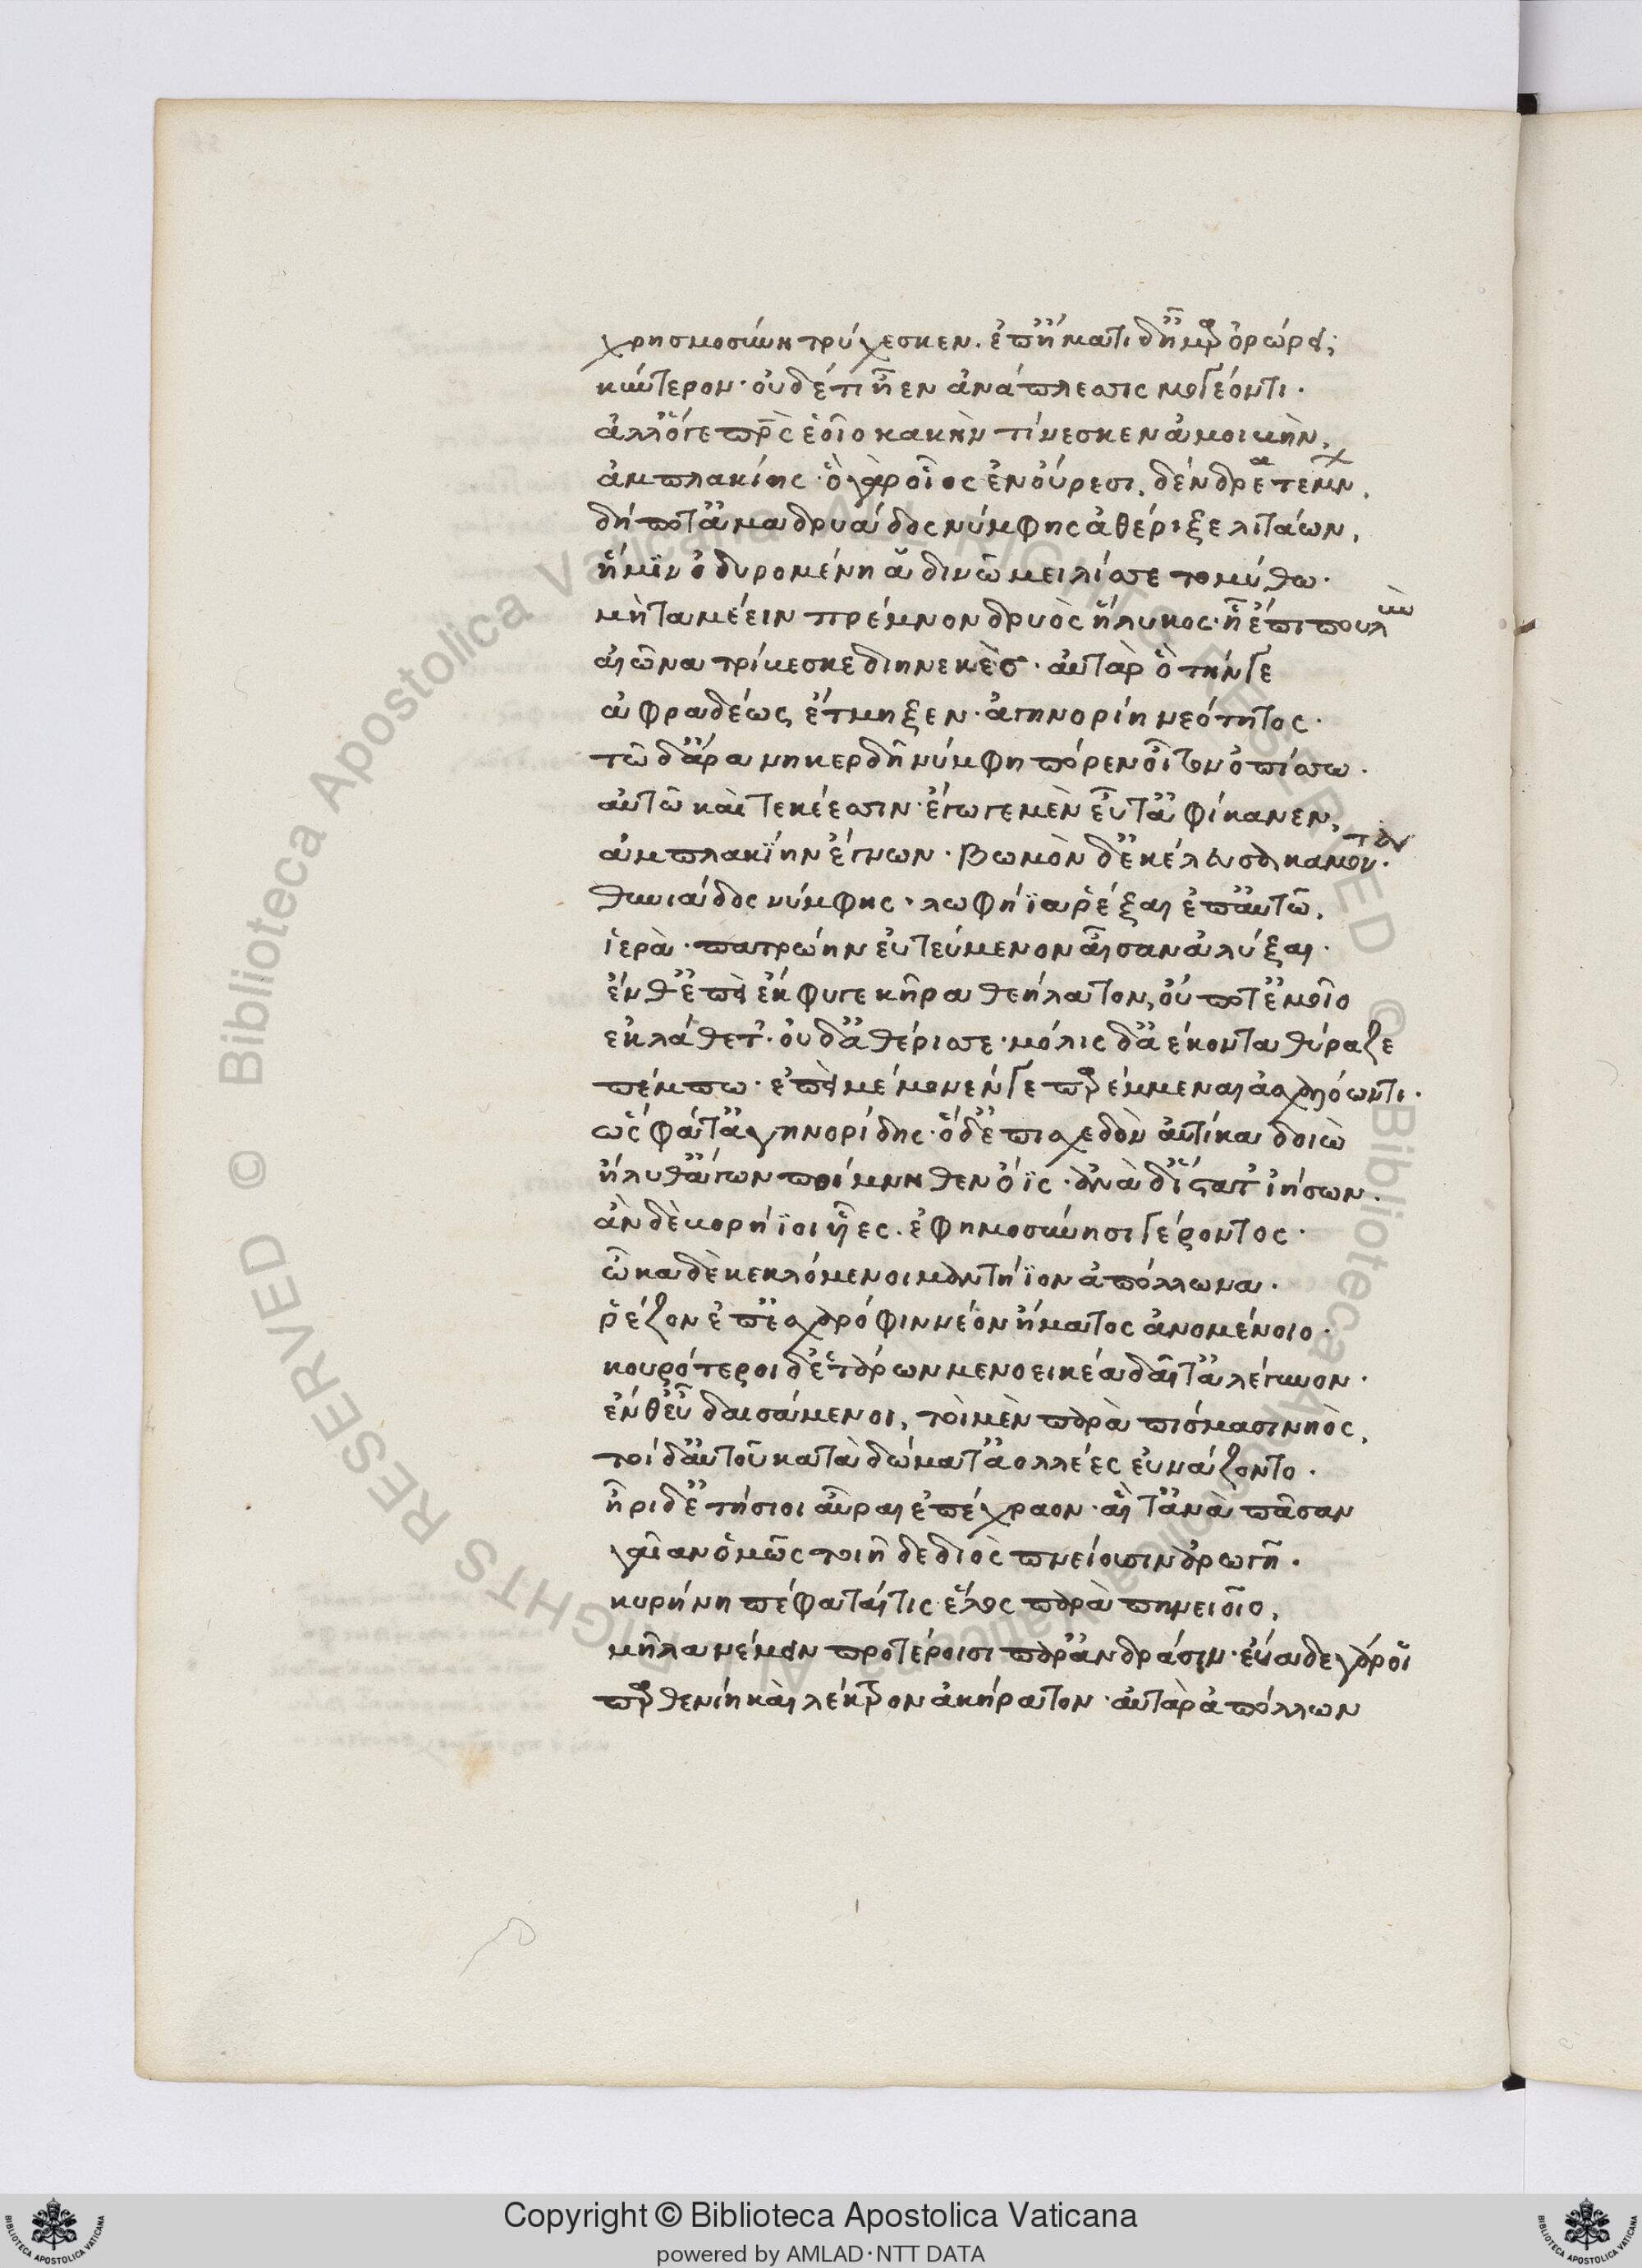 χρησμοσύνη τρύχεσκεν. ἐπ' ἤματι δ' ἦμαρ ὀρώρει·
κύντερον· οὐδέ τι ἦεν ἀνάπνευσις μογέοντι.
ἀλλ' ὅγε πρὸς ἑοῖο κακὴν τίνεσκεν ἀμοιβὴν,
ἀμπλακίης· ὁ γὰρ οἶος ἐν οὔρεσι, δένδρεα τέμνων,
δή ποτ' ἁμαδρυάδος νύμφης ἀθέριξε λιτάων,
ἥ μϊν ὀδυρομένη ἀδινῶ μειλίσσετο μύθω·
μὴ ταμέειν πρέμνον δρυὸς ἥλικος· ἧ ἔπι πουλὺν
αἰῶνα τρίβεσκε διηνεκὲς· αὐτὰρ ὁ τήνγε
ἀφραδέως ἔτμηξεν· ἀγηνορίη νεότητος.
τῶ δ' ἄρα νηκερδῆ νύμφη πόρεν οἶτον ὀπίσσω.
αὐτῶ καὶ τεκέεσσιν· ἔγωγε μὲν εὖτ' ἀφίκανεν,
ἀμπλακϊην ἔγνων· βωμὸν δ' ἐκέλευσα καμόντα.
θυνιάδος νύμφης· λωφήϊα ῥέξαι ἐπ' αὐτῶ,
ἱερὰ· πατρώην εὐτεύμενον αἶσαν ἀλύξαι.
ἔνθ' ἐπεὶ ἔκφυγε κῆρα θεήλατον, οὔ ποτ' ἐμοῖο
ἐκλάθετ'· οὐδ' ἀθέρισσε· μόλις δ' ἀέκοντα θύραζε
πέμπω· ἐπεὶ μέμονέν γε παρέμμεναι ἀσχαλόωντι.
ὣς φάτ' ἀγηνορίδης· ὁ δ' ἐπισχεδὸν αὐτίκα δοιὼ
ἤλυθ' ἄγων ποίμνηθεν ὄϊς· ἀνὰ δ' ἵστατ' ἰήσων.
ἂν δὲ βορήϊοι υἷες. ἐφημοσύνησι γέροντος.
ὦκα δὲ κεκλόμενοι μαντήϊον ἀπόλλωνα.
ῥέζον ἐπ' ἐσχαρόφιν νέον ἤματος ἀνομένοιο.
κουρότεροι δ' ἑτάρων μενοεικέα δαῖτ' ἀλέγυνον.
ἔνθ' εὖ δαισάμενοι, τοὶ μὲν παρὰ πείσμασι νηὸς,
τοὶ δ' αὐτοῦ κατὰ δώματ' ἀολλέες εὐνάζοντο.
ἦρι δ' ἐτήσιοι αὖραι ἐπέχραον· αἵ τ' ἀνὰ πᾶσαν
γαῖαν ὁμῶς τοιῆ δε διὸς πνείουσιν ἀρωγῆ.
κυρήνη πέφαται τις ἕλος παρὰ πηνειοῖο,
μῆλα νέμειν προτέροισι παρ' ἀνδράσιν· εὔαδε γάρ οἱ
παρθενίη καὶ λέκτρον ἀκήρατον· αὐτὰρ ἀπόλλων
Copyright © Biblioteca Apostolica Vaticana
powered by AMLAD·NTT DATA